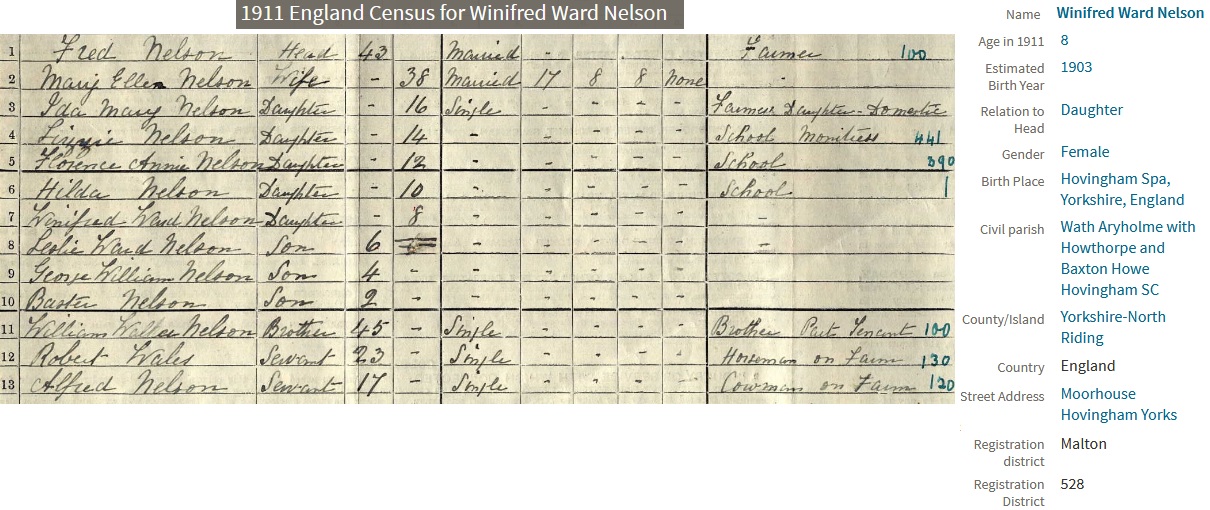 1911 England Census for Winifred Ward Nelson
1 Fred Nelson Head 43 Married - Farmer 100
2 Mary Ellen Nelson Wife - 38 Married 17 8 8 none -
3 Ida Mary Nelson Daughter - 16 Single - - - - Farmers Daughter - Domestic
4 Nelson Daughter - 14 - - - - - School Monitress 441
5 Florence Annie Nelson Daughter - 12 - - - - - School 390
6 Hilda Nelson Daughter - 10 - - - - - School 1
7 Winifred Ward Nelson Daughter - 8 - - - - - -
8 Leslie Ward Nelson Son 6 - - - - - -
9 George William Nelson Son 4 - - - - - -
10 Baxter Nelson Son 2 - - - - - -
11 William Nelson Brother 45 - Single - - - - Brother Part Tenant 100
12 Robert Wales Servant 23 - Single - - - - Horseman on Farm 130
13 Alfred Nelson Servant 17 - Single - - - - Cowman on Farm 120
Name Winifred Ward Nelson
Age in 1911 8
Estimated 1903
Birth Year
Relation to Daughter
Head
Gender Female
Birth Place Hovingham Spa,
Yorkshire, England
Civil parish Wath Aryholme with
Howthorpe and
Baxton Howe
Hovingham SC
County/Island Yorkshire-North
Riding
Country England
Street Address Moorhouse
Hovingham Yorks
Registration Malton
district
Registration 528
District